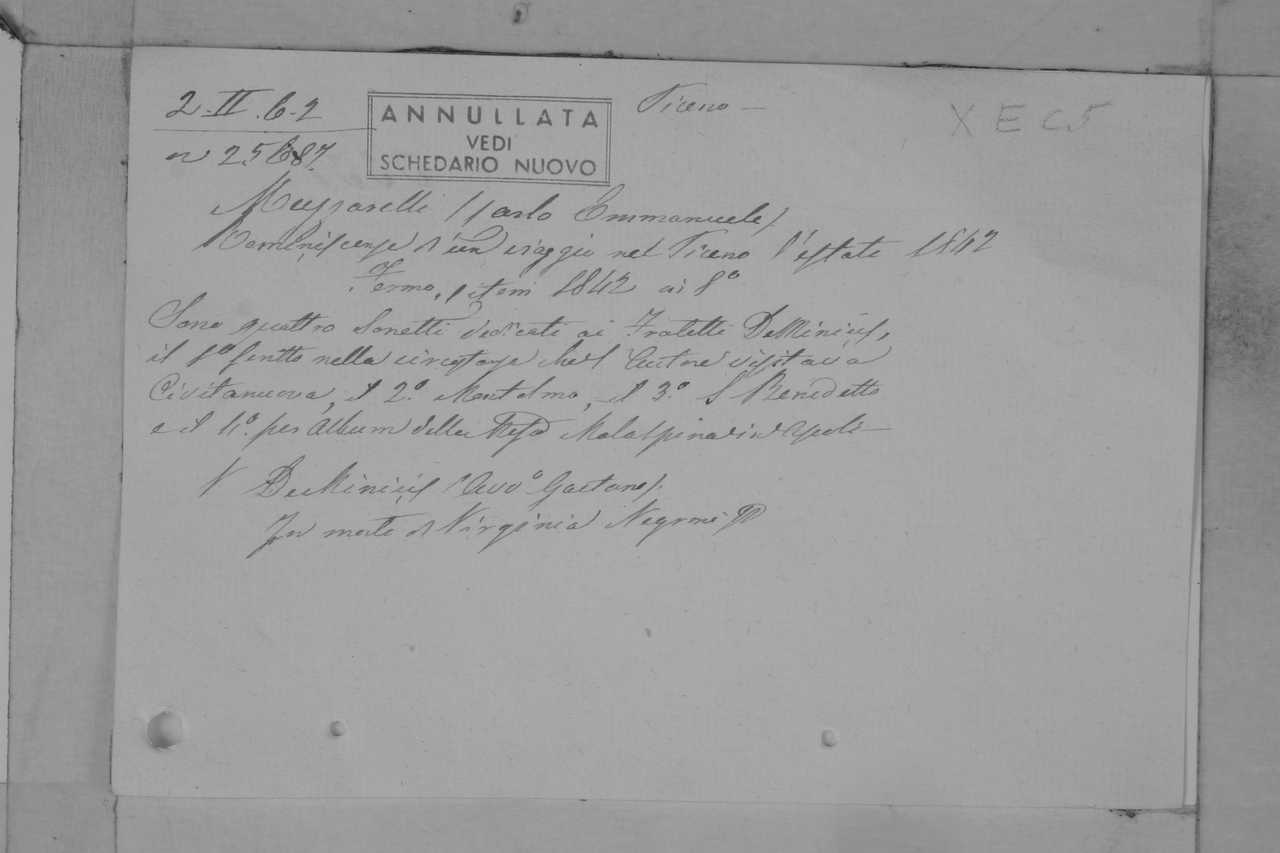 2-II.6-2
ANNULLATA
VEDI
SCHEDARIO NUOVO
Piceno -
X E C5
n 25687.
Muzzarelli (Carlo Emmanuele)
Reminiscenze d'un viaggio nel Piceno l'estate 1842
Fermo, 1842 in 8º
Sono quattro Sonetti dedicati ai Fratelli DeMinicis,
il 1º scritto nella circostanza che l'Autore visitava
Civitanuova, il 2º. Montolmo, il 3º. S Benedetto
e il 4º. per Album della Malaspina
V DeMinicis (Avvº Gaetano).
In morte di Virginia Negroni